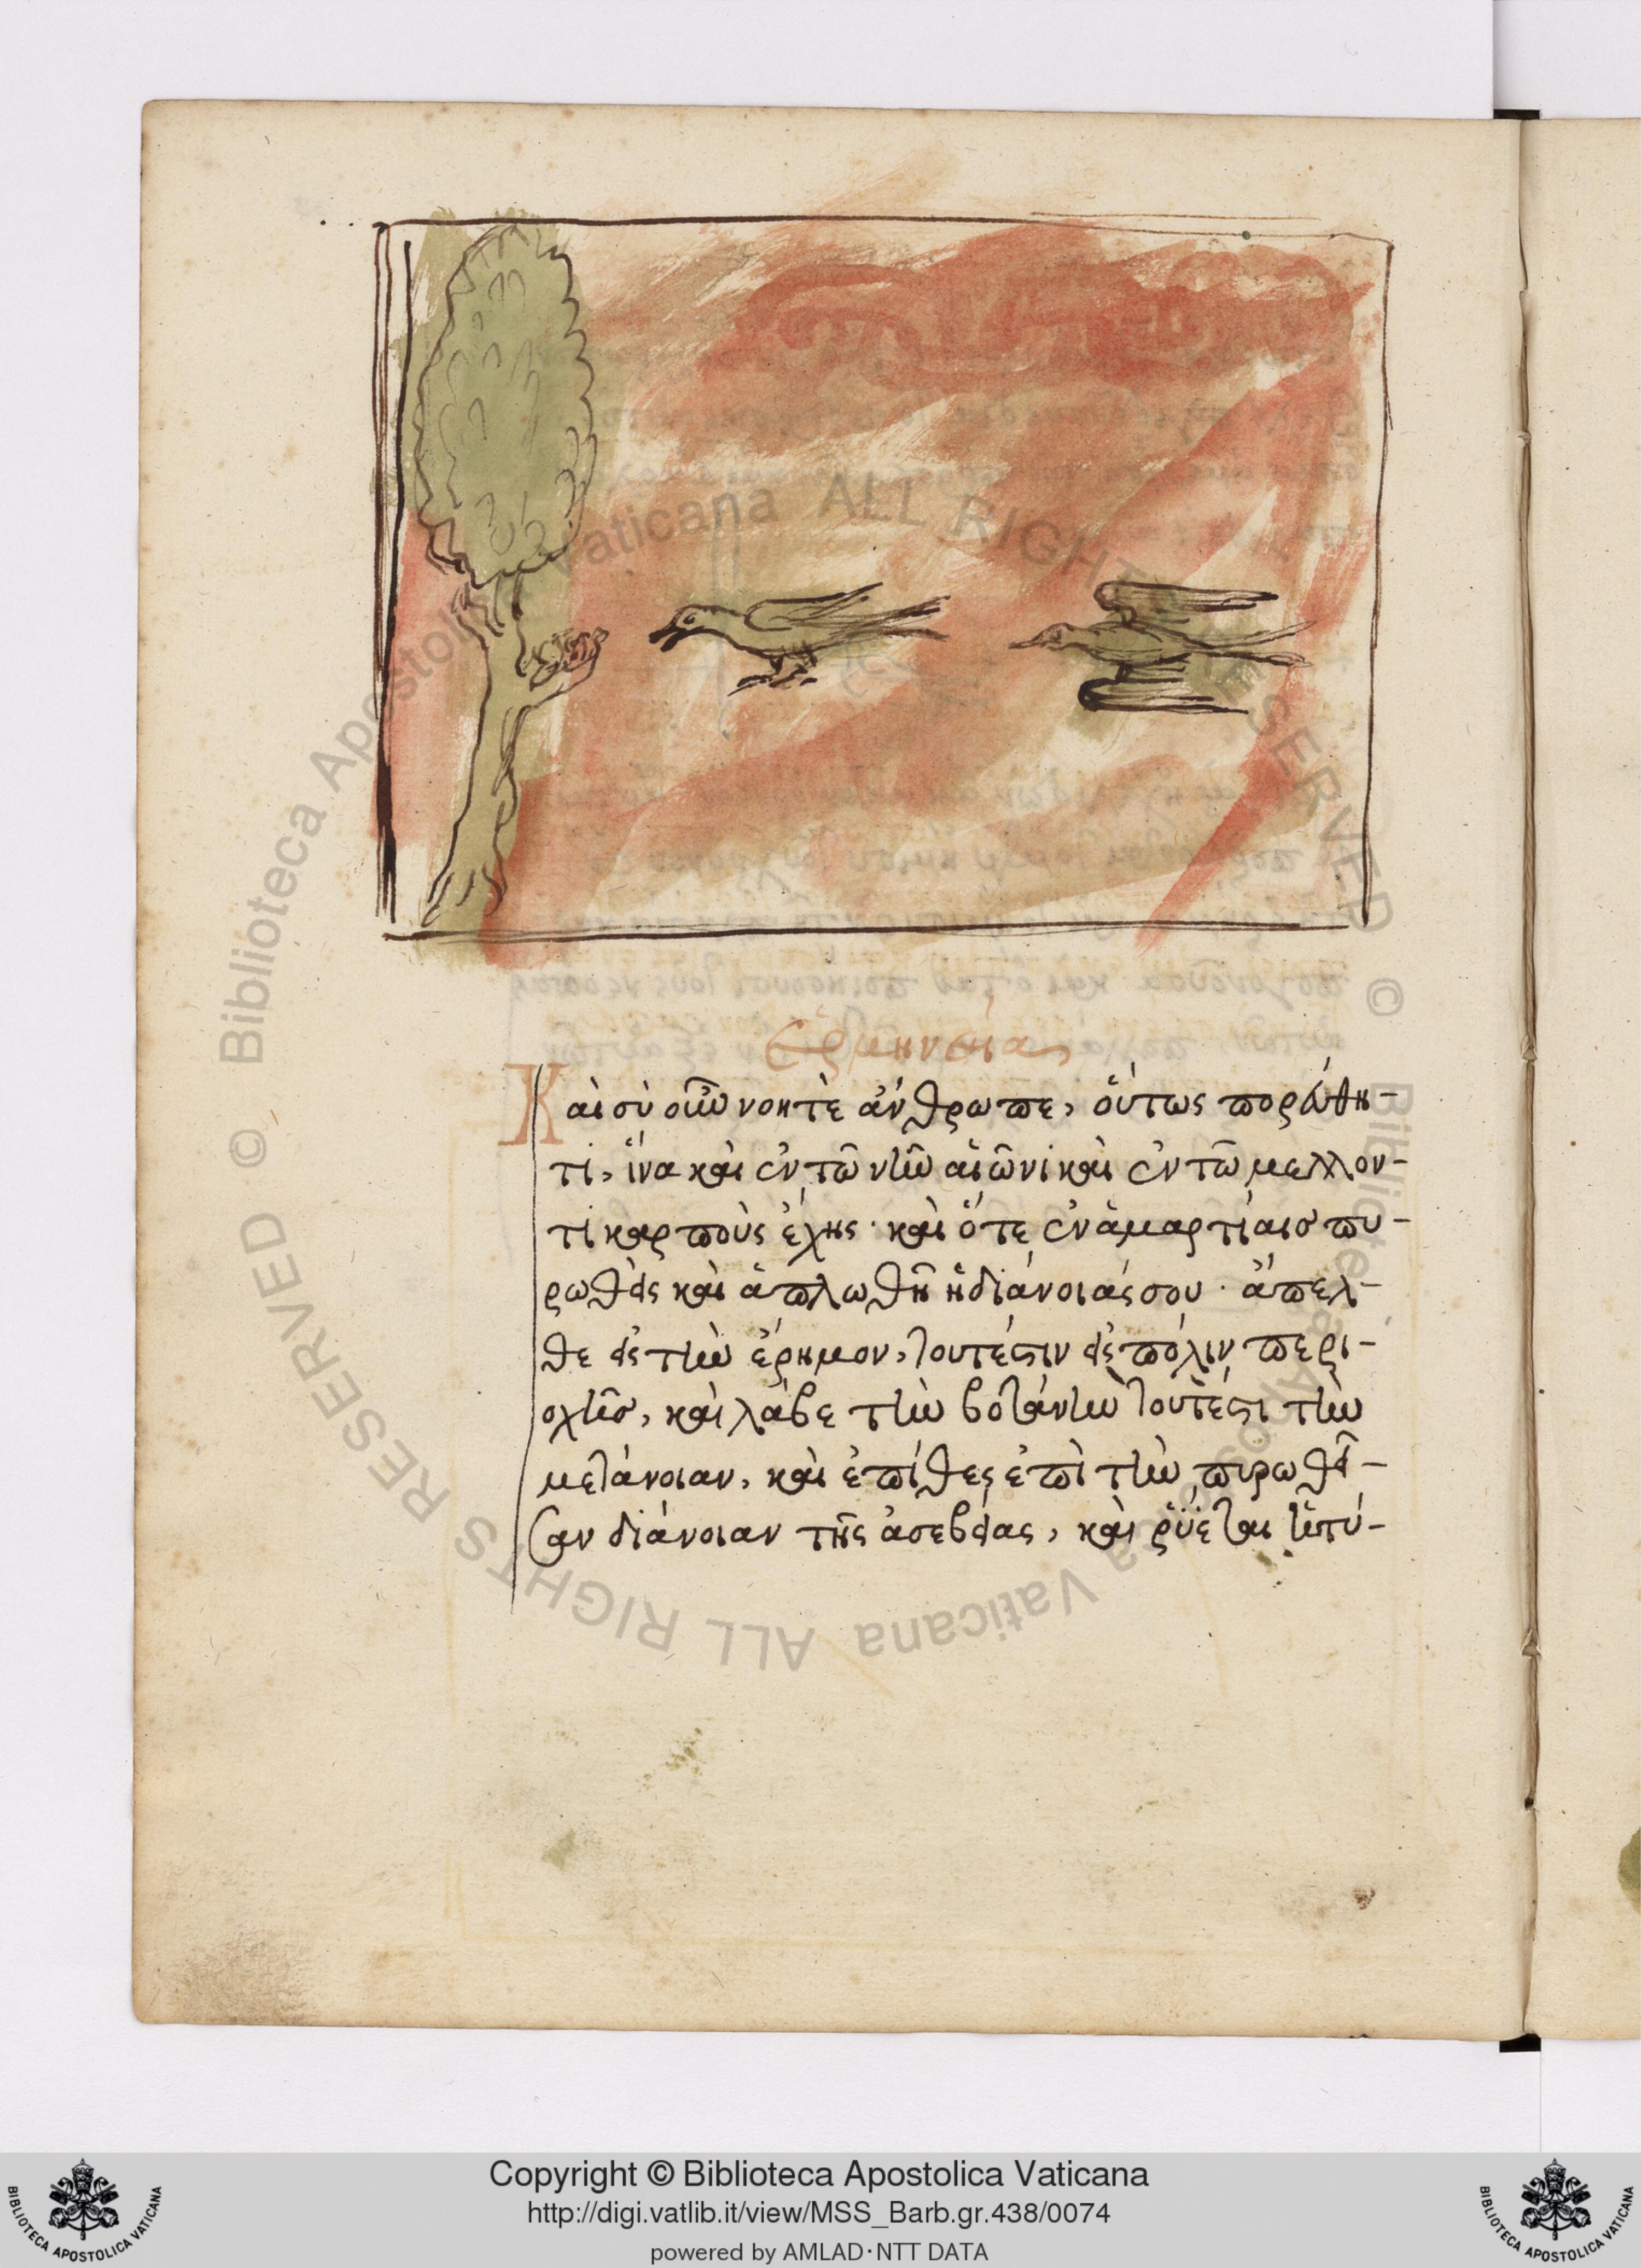 Ἑρμηνεία
Καὶ σὺ οὖν νοητὲ ἄνθρωπε, οὕτως πορεύθη-
τι, ἵνα καὶ ἐν τῶ νῦν αἰῶνι καὶ ἐν τῶ μελλον-
τι καρποὺς ἔχης · καὶ ὅτε ἐν ἁμαρτίαισ πυ-
ρωθεὶς καὶ ἁπλωθῆ ἡ διάνοιάς σου · ἄπελ-
θε εἰς τὴν ἔρημον, τουτέστιν εἰς πόλιν περι-
οχῆσ, καὶ λάβε τὴν βοτάνην τουτέστι τὴν
μετάνοιαν, καὶ ἐπίθες ἐπὶ τὴν πυρωθεῖ-
σαν διάνοιαν τῆς ἀσεβείας, καὶ ῥύεται
Biblioteca Apostolica Vaticana ALL RIGHTS RESERVED ©
Copyright © Biblioteca Apostolica Vaticana
http://digi.vatlib.it/view/MSS_Barb.gr.438/0074
powered by AMLAD·NTT DATA
BIBLIOTECA APOSTOLICA VATICANA
BIBLIOTECA APOSTOLICA VATICANA